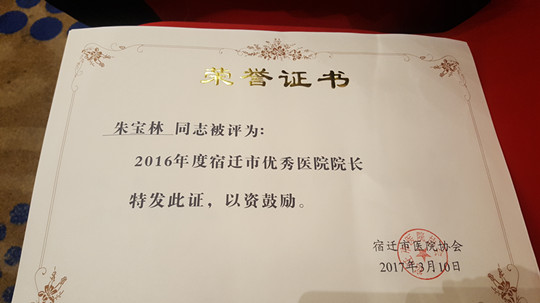 荣誉证书
朱宝林 同志被评为:
2016年度宿迁市优秀医院院长
特发此证，以资鼓励。
宿迁市医院协会
2017年3月10日